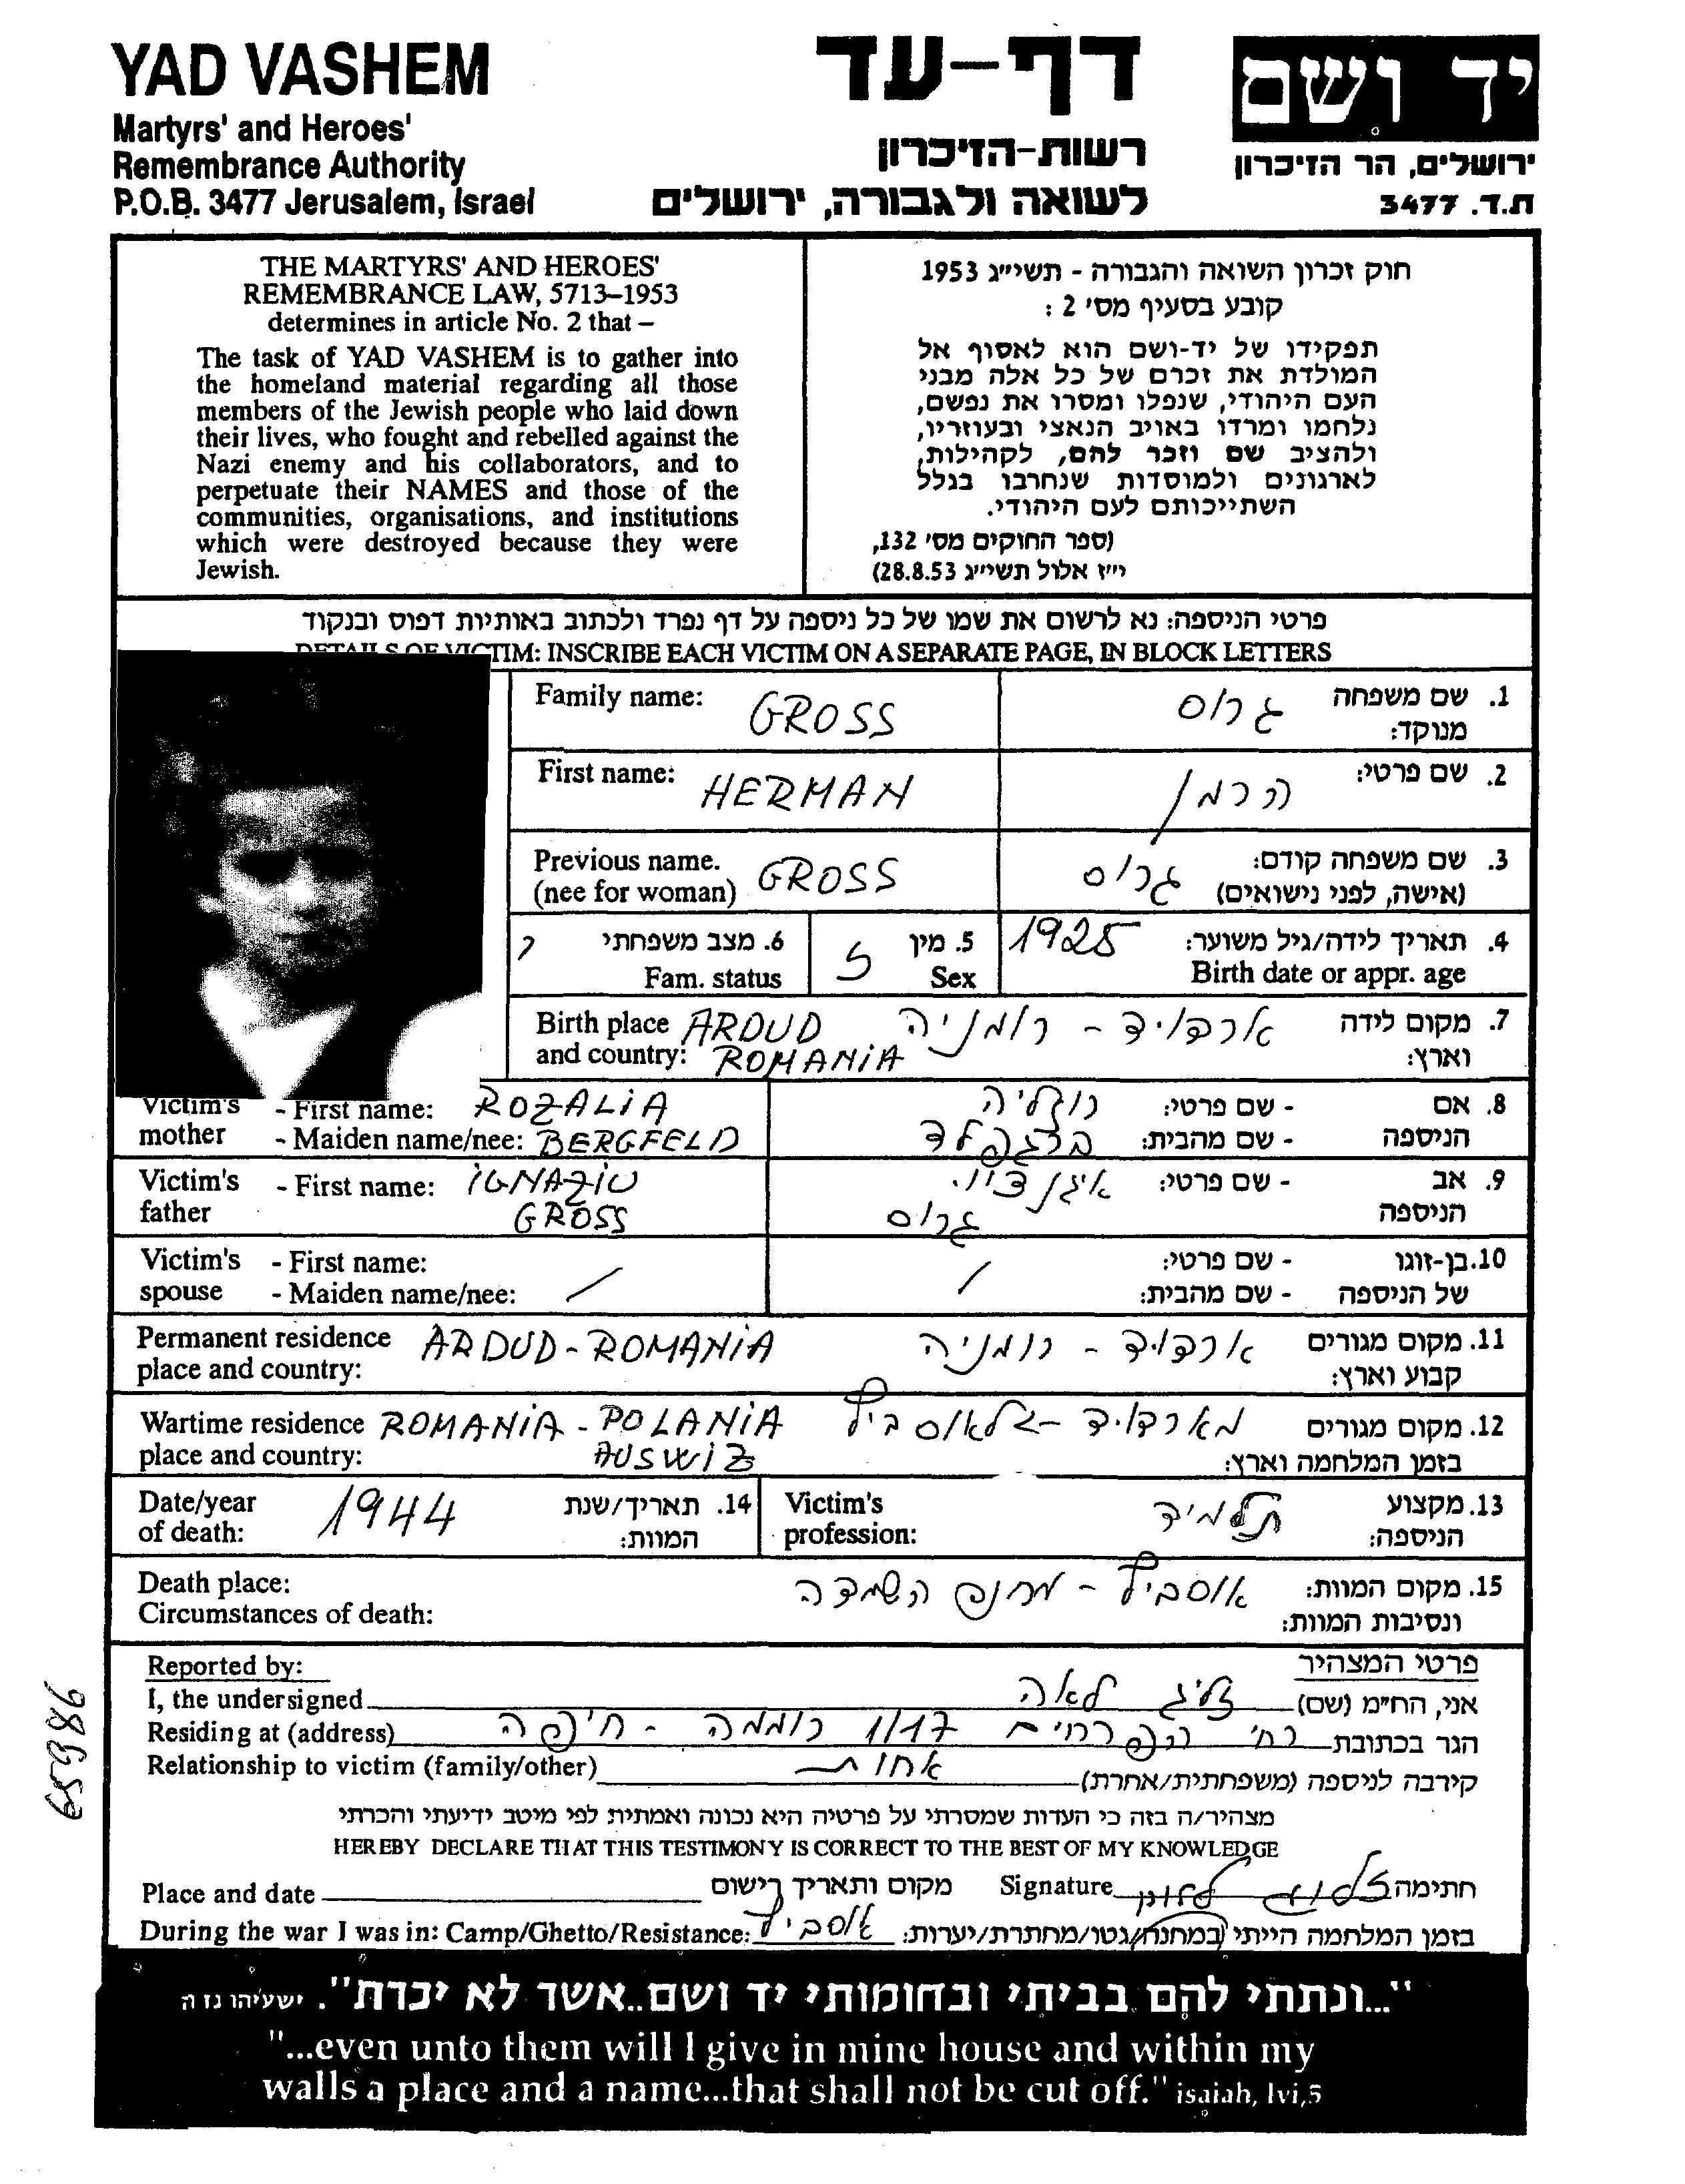 YAD VASHEM
Martyrs' and Heroes'
Remembrance Authority
P.O.B. 3477 Jerusalem, Israel
דף-עד
רשות-הזיכרון
לשואה ולגבורה, ירושלים
יד ושם
ירושלים, הר הזיכרון
ת.ד. 3477
THE MARTYRS' AND HEROES'
REMEMBRANCE LAW, 5713–1953
determines in article No. 2 that –
The task of YAD VASHEM is to gather into
the homeland material regarding all those
members of the Jewish people who laid down
their lives, who fought and rebelled against the
Nazi enemy and his collaborators, and to
perpetuate their NAMES and those of the
communities, organisations, and institutions
which were destroyed because they were
Jewish.
חוק זכרון השואה והגבורה - תשי״ג 1953
קובע בסעיף מס׳ 2 :
תפקידו של יד-ושם הוא לאסוף אל
המולדת את זכרם של כל אלה מבני
העם היהודי, שנפלו ומסרו את נפשם,
נלחמו ומרדו באויב הנאצי ובעוזריו,
ולהציב שם וזכר להם, לקהילות,
לארגונים ולמוסדות שנחרבו בגלל
השתייכותם לעם היהודי.
(ספר החוקים מס׳ 132,
י״ז אלול תשי״ג 28.8.53)
פרטי הניספה: נא לרשום את שמו של כל ניספה על דף נפרד ולכתוב באותיות דפוס ובנקוד
DETAILS OF VICTIM: INSCRIBE EACH VICTIM ON A SEPARATE PAGE, IN BLOCK LETTERS
Family name: GROSS גרוס 1. שם משפחה
מנוקד:
First name: HERMAN הרמן 2. שם פרטי:
Previous name. GROSS גרוס 3. שם משפחה קודם:
(nee for woman) (אישה, לפני נישואים)
6. מצב משפחתי 5. מין 1925 4. תאריך לידה/גיל משוער:
Fam. status Sex Birth date or appr. age
Birth place ARDUD ארדויד - רומניה 7. מקום לידה
and country: ROMANIA וארץ:
Victim's - First name: ROZALIA רוזליה - שם פרטי: 8. אם
mother - Maiden name/nee: BERGFELD ברגפלד - שם מהבית: הניספה
Victim's - First name: IGNAZIU איגנציו - שם פרטי: 9. אב
father GROSS גרוס הניספה
Victim's - First name: - שם פרטי: 10. בן-זוגו
spouse - Maiden name/nee: / / - שם מהבית: של הניספה
Permanent residence ARDUD - ROMANIA ארדויד - רומניה 11. מקום מגורים
place and country: קבוע וארץ:
Wartime residence ROMANIA - POLANIA מארדויד - לאוסביץ 12. מקום מגורים
place and country: AUSWIZ בזמן המלחמה וארץ:
Date/year 1944 14. תאריך/שנת Victim's תלמיד 13. מקצוע
of death: המוות: profession: הניספה:
Death place: אוסביץ - מחנה השמדה 15. מקום המוות:
Circumstances of death: ונסיבות המוות:
Reported by: פרטי המצהיר
I, the undersigned זליג לאה אני, הח״מ (שם)
Residing at (address) רח׳ הפרחים 1/17 רוממה - חיפה הגר בכתובת
Relationship to victim (family/other) אחות קירבה לניספה (משפחתית/אחרת)
מצהיר/ה בזה כי העדות שמסרתי על פרטיה היא נכונה ואמתית לפי מיטב ידיעתי והכרתי
HEREBY DECLARE THAT THIS TESTIMONY IS CORRECT TO THE BEST OF MY KNOWLEDGE
Place and date מקום ותאריך רישום Signature חתימה
During the war I was in: Camp/Ghetto/Resistance: אוסביץ בזמן המלחמה הייתי (במחנה/גטו/מחתרת/יערות:
"...ונתתי להם בביתי ובחומותי יד ושם..אשר לא יכרת". ישעיהו נו ה
"...even unto them will I give in mine house and within my
walls a place and a name...that shall not be cut off." isaiah, lvi,5